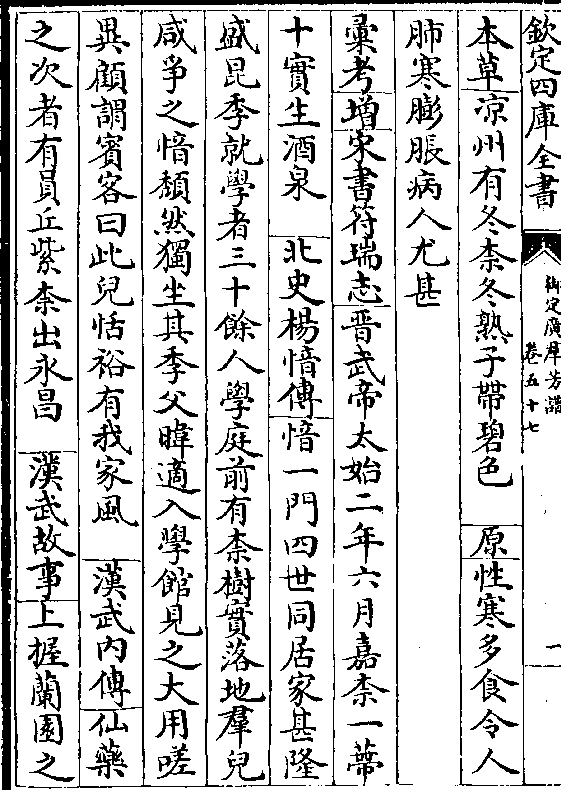 欽定四庫全書
御定廣羣芳譜
卷五十七
一
本草凉州有冬柰冬熟子帶碧色　原性寒多食令人
肺寒膨脹病人尤甚
彚考增宋書符瑞志晋武帝太始二年六月嘉柰一蔕
十實生酒泉　北史楊愔傳愔一門四世同居家甚隆
盛昆季就學者三十餘人學庭前有柰樹實落地羣兒
咸爭之愔頹然獨坐其季父暐適入學館見之大用嗟
異顧謂賓客曰此兒恬裕有我家風　漢武内傳仙藥
之次者有員丘紫柰出永昌　漢武故事上握蘭園之